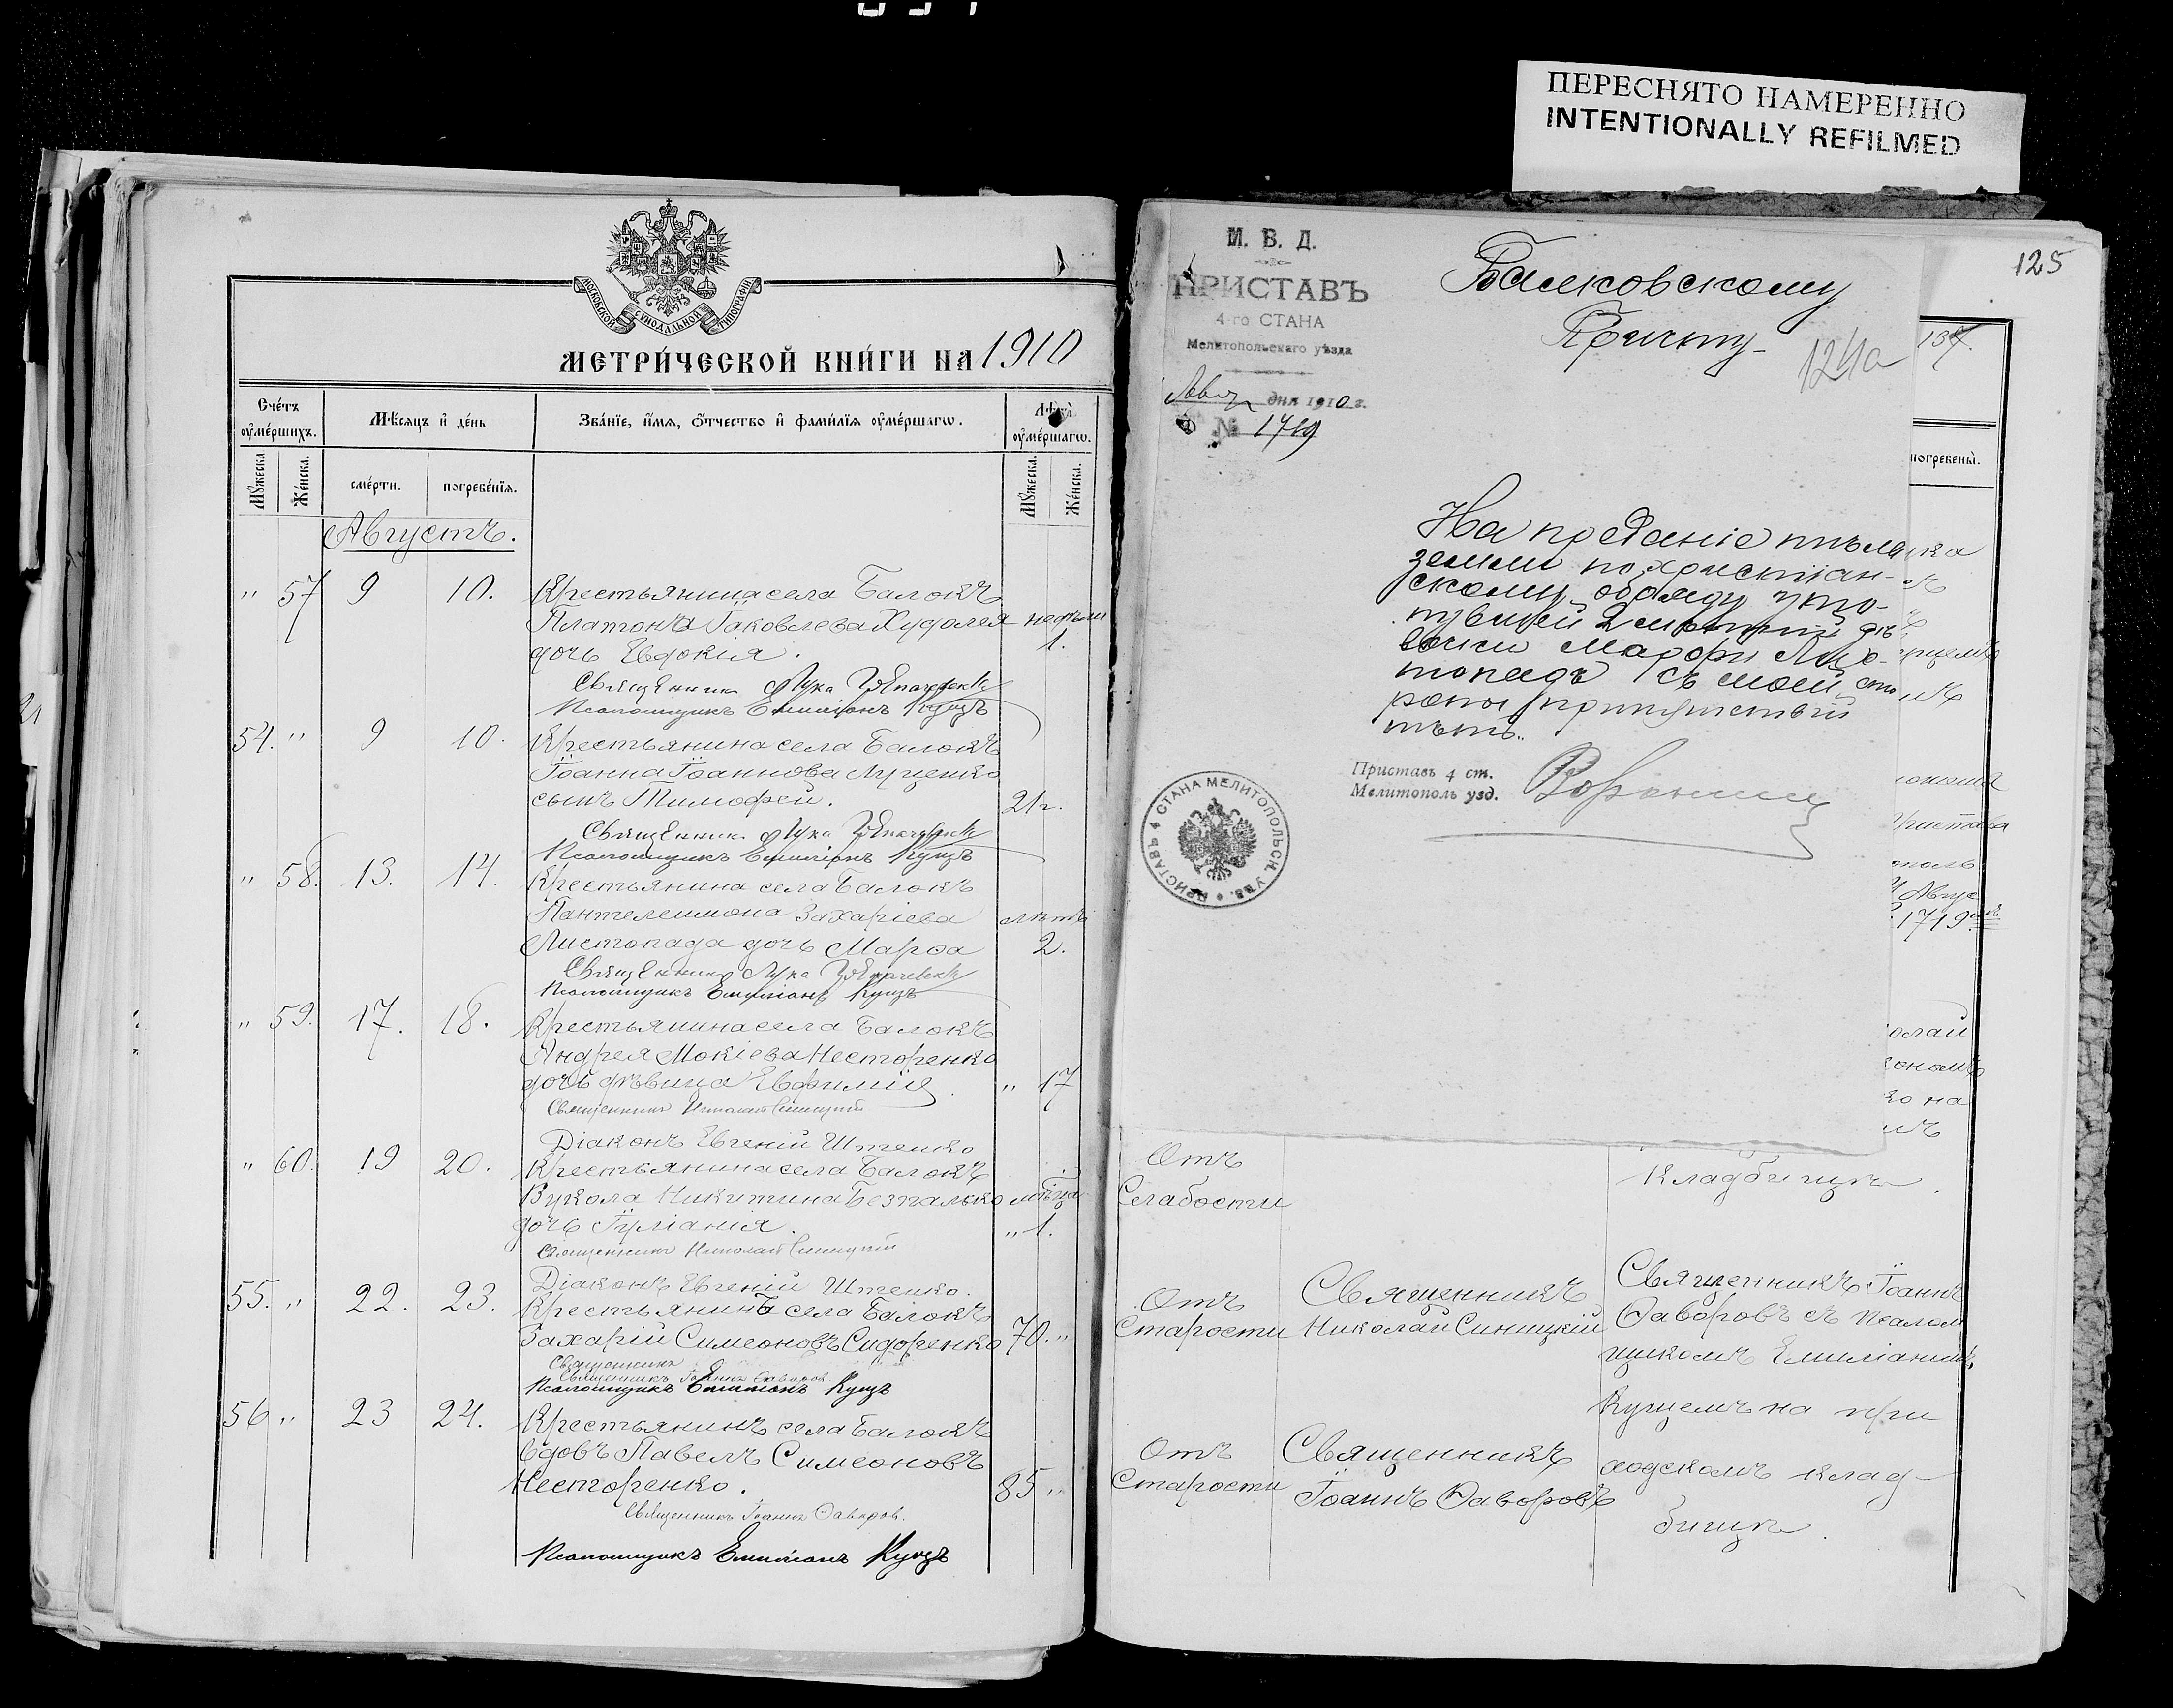 ПЕРЕСНЯТО НАМЕРЕННО
INTENTIONALLY REFILMED
МОСКОВСКОЙ СѴНОДАЛЬНОЙ ТИПОГРАФІИ
МЕТРИ́ЧЕСКОЙ КНИ́ГИ НА 1910
Сче́тъ ᲂу҆ме́ршихъ.
Мѣ́сяцъ и҆ де́нь
Зва́нїе, и҆́мя, ѻ҆́тчество и҆ фами́лїя ᲂу҆ме́ршагѡ.
Лѣ́та ᲂу҆ме́ршагѡ.
Мꙋ́жеска.
Же́нска.
сме́рти.
погребе́нїя.
Мꙋ́жеска.
Же́нска.
Августъ.
" 57 9 10. Крестьянина села Балокъ
Платона Іаковлева Худолея недѣли
дочь Евдокія. 1.
Священникъ Лука
Псаломщикъ Емиліанъ Куцъ
54. " 9 10. Крестьянина села Балокъ
Іоанна Іоаннова Луценко
сынъ Тимофей. 21г.
Священникъ Лука
Псаломщикъ Емиліанъ Куцъ
" 58. 13. 14. Крестьянина села Балокъ
Пантелеимона Захаріева лѣтъ
Листопада дочь Марфа 2.
Священникъ Лука
Псаломщикъ Емиліанъ Куцъ
" 59. 17. 18. Крестьянина села Балокъ
Андрея Мокіева Несторенко
дочь дѣвица Евфимія " 17
Священникъ Николай Синицкій
Діаконъ Евгеній Штепко
" 60. 19 20. Крестьянина села Балокъ
Вукола Никитина Безпалько мѣсяц
дочь Іуліанія. " 1.
Священникъ Николай Синицкій
Діаконъ Евгеній Штепко.
55. " 22. 23. Крестьянинъ села Балокъ
Захарій Симеоновъ Сидоренко 70. "
Священникъ
Священникъ Іоаннъ Фаворов.
Псаломщикъ Емиліанъ Куцъ
56 " 23 24. Крестьянинъ села Балокъ
вдовъ Павелъ Симеоновъ
Несторенко. 85 "
Священникъ Іоаннъ Фаворов.
Псаломщикъ Емиліанъ Куцъ
125
М. В. Д.
ПРИСТАВЪ
4-го СТАНА
Мелитопольскаго уѣзда
Авг дня 1910 г.
№ 1719
Балковскому
Причту
124а
погребены̀.
На преданіе тѣла
земли по христіан-
скому обряду уто-
пувшей 2 лѣтней дѣ
вочки Марфы Лис-
топадъ съ моей сто
роны препятствій
нѣтъ.
Приставъ 4 ст.
Мелитополь узд.
ПРИСТАВЪ 4 СТАНА МЕЛИТОПОЛЬСК. УѢЗ.
Авгус
1719
олай
ко на
Отъ
Слабости
Кладбищѣ.
Отъ
Старости
Священникъ
Николай Синицкій
Священникъ Іоаннъ
Фаворовъ съ псалом
щикомъ Емиліаномъ
Куцемъ на при
ходскомъ клад-
бищѣ.
Отъ
Старости
Священникъ
Іоаннъ Фаворовъ